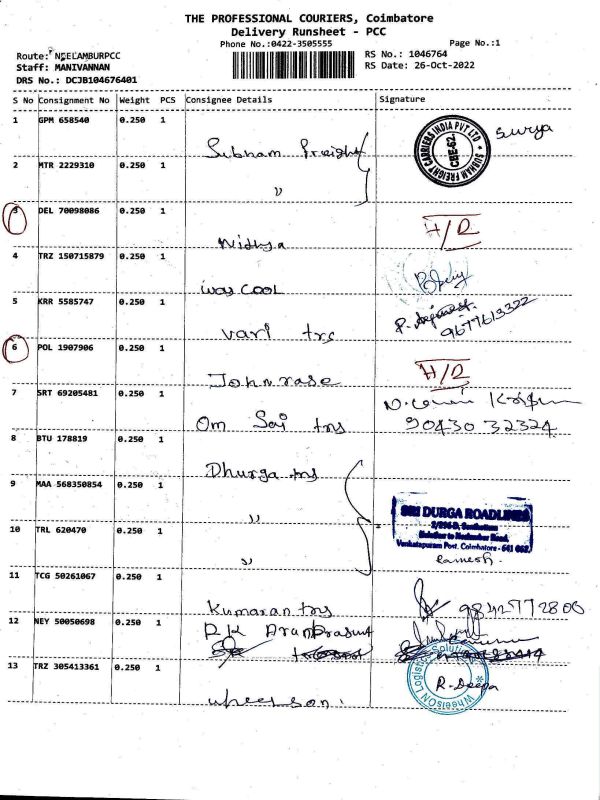 THE PROFESSIONAL COURIERS, Coimbatore
Delivery Runsheet - PCC
Phone No.:0422-3505555
Page No.:1
Route: NEELAMBURPCC
RS No.: 1046764
Staff: MANIVANNAN
RS Date: 26-Oct-2022
DRS No.: DCJB104676401
S No Consignment No Weight PCS Consignee Details Signature
1 GPM 658540 0.250 1
Subham Freight
SUBHAM FREIGHT CARRIERS INDIA PVT LTD
CBE-62
Surya
2 MTR 2229310 0.250 1
"
3 DEL 70098086 0.250 1
Nidhya H/D
4 TRZ 150715879 0.250 1
was COOL
5 KRR 5585747 0.250 1
vari trs 9677613322
6 POL 1907906 0.250 1
John rase H/D
7 SRT 69205481 0.250 1
Om Sai trs 90430 32324
8 BTU 178819 0.250 1
Dhurga trs
9 MAA 568350854 0.250 1
"
SRI DURGA ROADLINES
Venkatapuram Post. Coimbatore - 641 062.
10 TRL 620470 0.250 1
"
ramesh.
11 TCG 50261067 0.250 1
Kumaran trs 9842772800
12 NEY 50050698 0.250 1
P.K Aran Prasunt
13 TRZ 305413361 0.250 1
wheelson.
WheelsON Logistic Solutions
R. Deepa